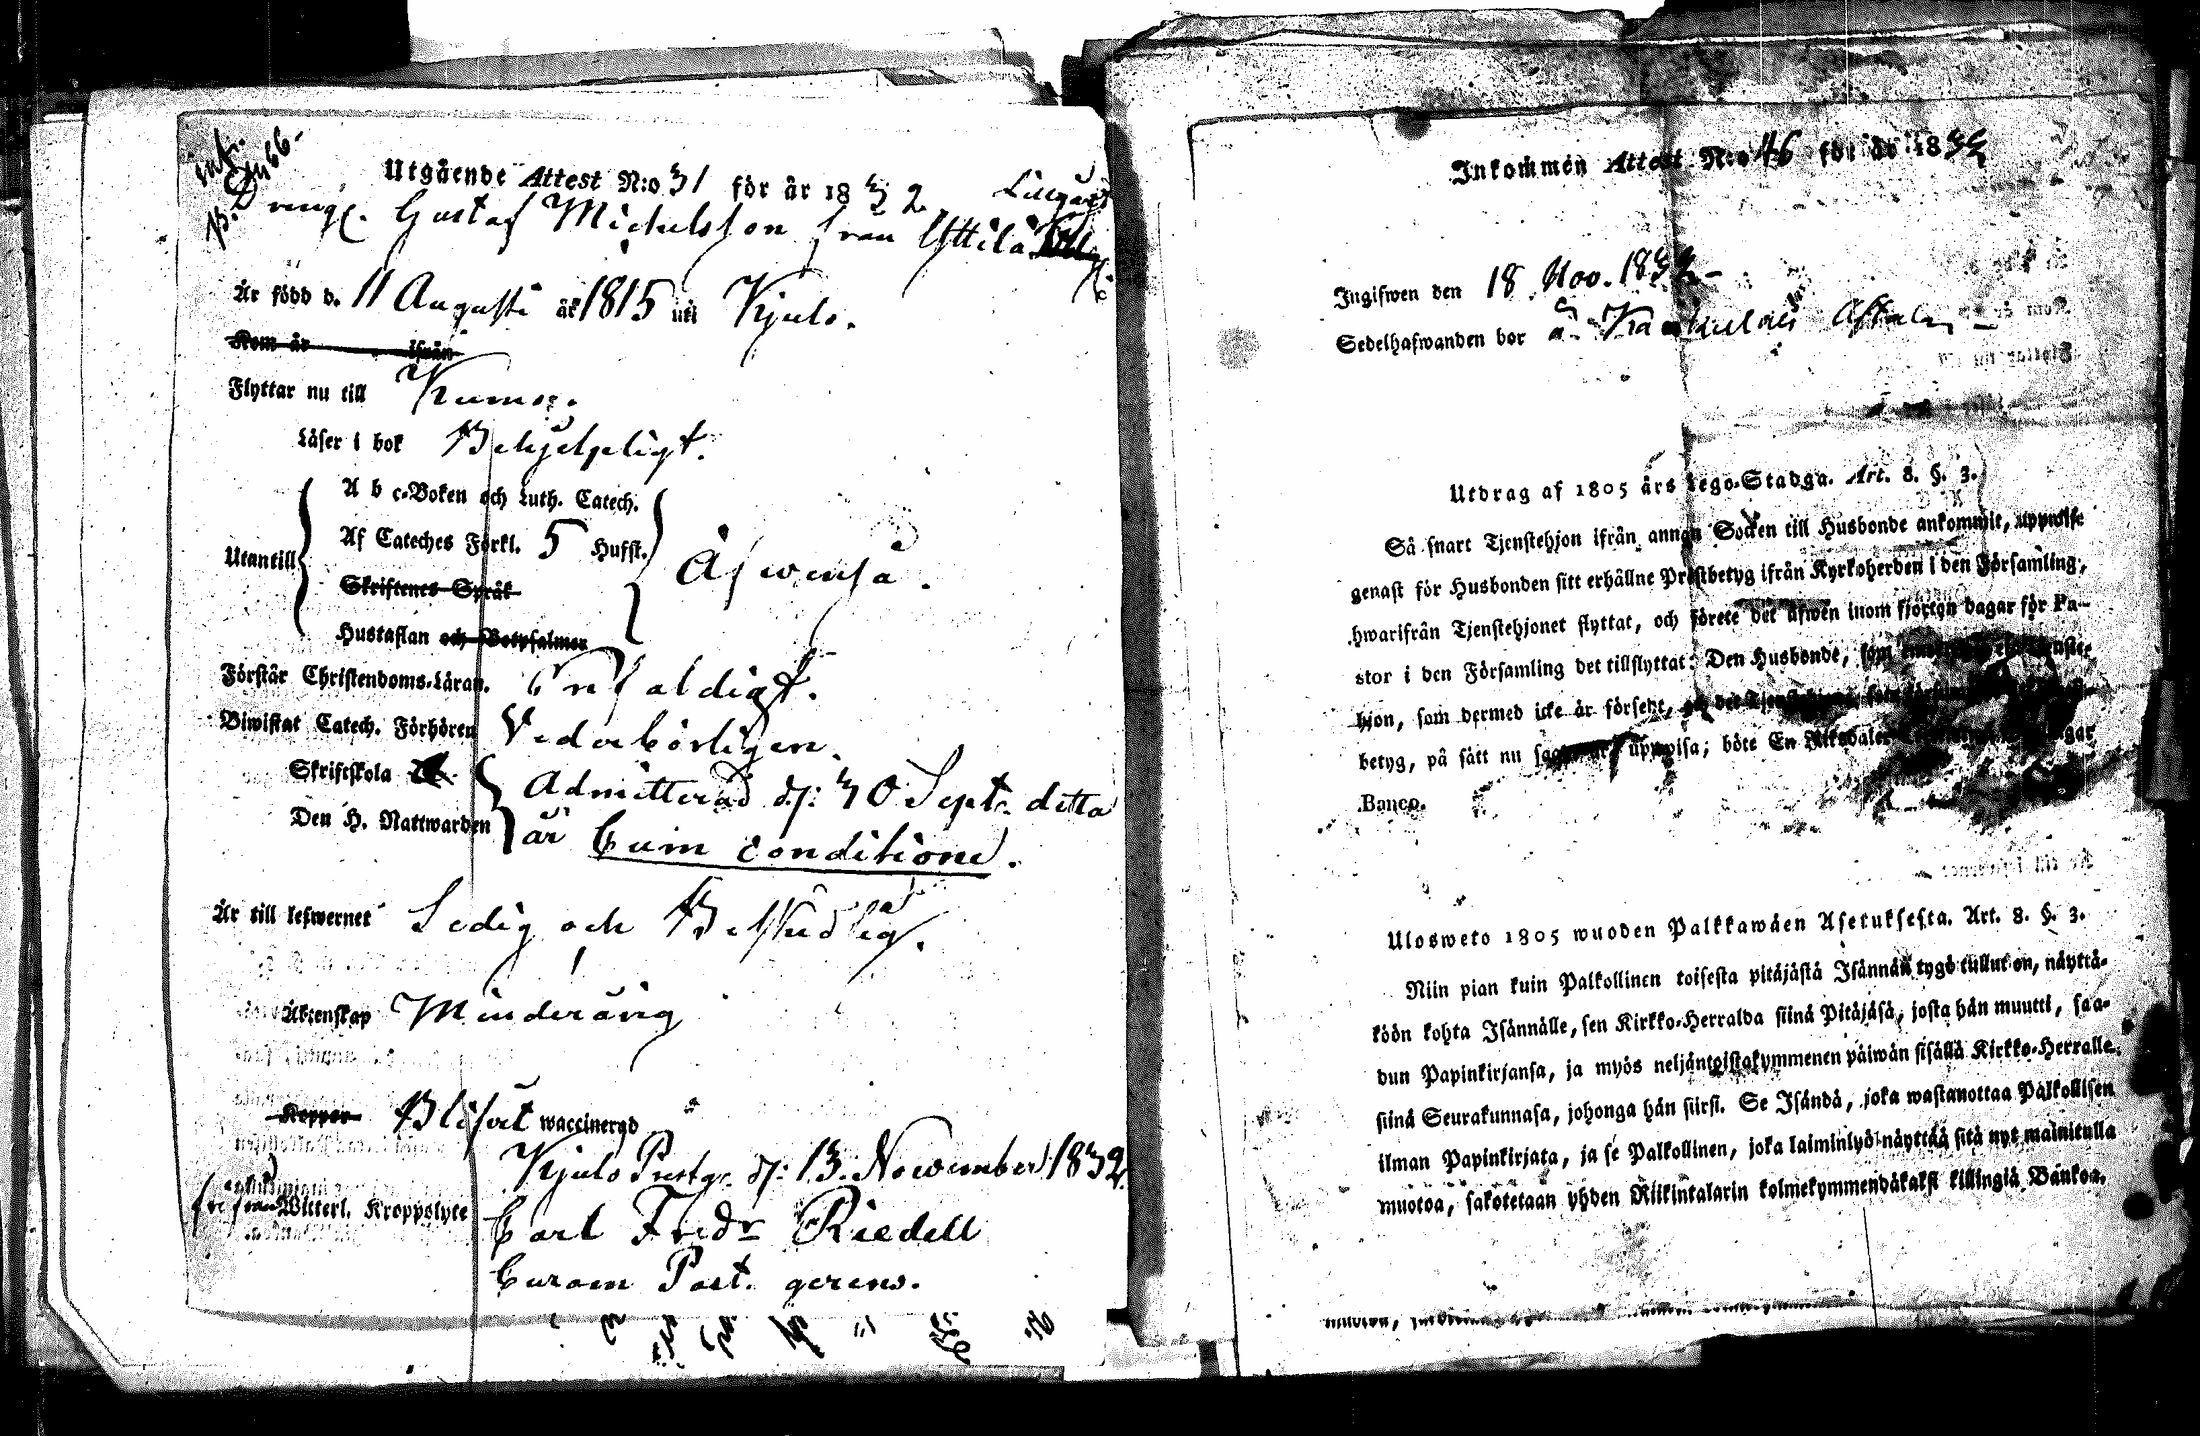 Utgående Attest N:o 31 för år 1832
Drengen Gustaf Michelsson från Yttilä
Är född d. 11 Augusti år 1815 uti Kjulo.
Kom år ifrån
Flyttar nu till Kumo.
Läser i bok Behjelpligt.
A b c-Boken och Luth. Catech.
Af Cateches Förkl. 5 Hufst.
Utantill Äfwenså.
Skriftenes Språk
Hustaflan och Botpsalmer
Förstår Christendoms-Läran. Enfaldigt.
Biwistat Catech. Förhören Vederbörligen.
Skriftskola
Admitterad d: 30 Sept. detta
Den H. Nattwarden
år Cum conditione.
Är till lefwernet Ledig och Beskedlig.
Äktenskap Minderårig
Koppor Blifvit waccinerad
Kjulo Prestg. d: 13 November 1832
fri från Witterl. Kroppslyte
Carl Fredr Riedell
Curam Past. gerens.
Inkommen Attest N:o 46 för år 1832
Ingifwen den 18 Nov. 1832
Sedelhafwanden bor å
Utdrag af 1805 års Lego-Stadga. Art. 8. §. 3.
Så snart Tjenstehjon ifrån annan Socken till Husbonde ankommit, uppwise
genast för Husbonden sitt erhållne Prestbetyg ifrån Kyrkoherden i den Församling,
hwarifrån Tjenstehjonet flyttat, och förete det äfwen inom fjorton dagar för Pa-
stor i den Församling det tillflyttat: Den Husbonde, som
hjon, som dermed icke är försedt, och det
betyg, på sätt nu uppwisa; böte En Riksdaler
Banco.
Ulosweto 1805 wuoden Palkkawäen Asetuksesta. Art. 8. §. 3.
Niin pian kuin Palkollinen toisesta pitäjästä Isännän tygö tullut on, näyttä-
köön kohta Isännälle, sen Kirkko-Herralda siinä Pitäjäsä, josta hän muutti, saa-
dun Papinkirjansa, ja myös neljäntoistakymmenen päiwän sisällä Kirkko-Herralle
siinä Seurakunnasa, johonga hän siirsi. Se Isändä, joka wastanottaa Palkollisen
ilman Papinkirjata, ja se Palkollinen, joka laiminlyö näyttää sitä nyt mainitulla
muotoa, sakotetaan yhden Riikintalarin kolmekymmendäkaksi killingiä Bankoa.